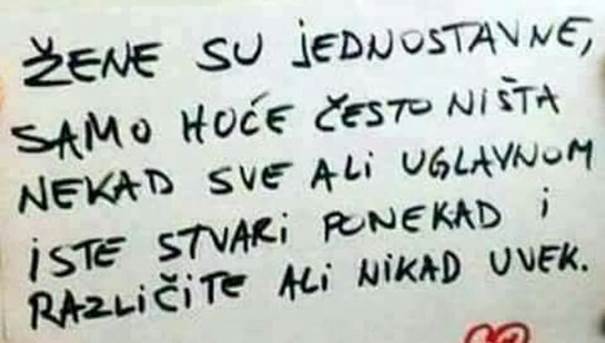 ŽENE SU JEDNOSTAVNE,
SAMO HOĆE ČESTO NIŠTA
NEKAD SVE ALI UGLAVNOM
ISTE STVARI PONEKAD I
RAZLIČITE ALI NIKAD UVEK.